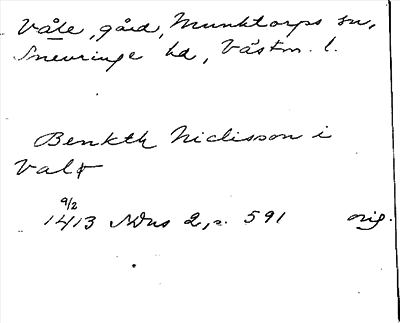 Våle, gård, Munktorps sn,
Snevringe hd, Västm. l.
Benkth Niclisson i
Vale
9/2
1413 SDns 2, s. 591 orig.